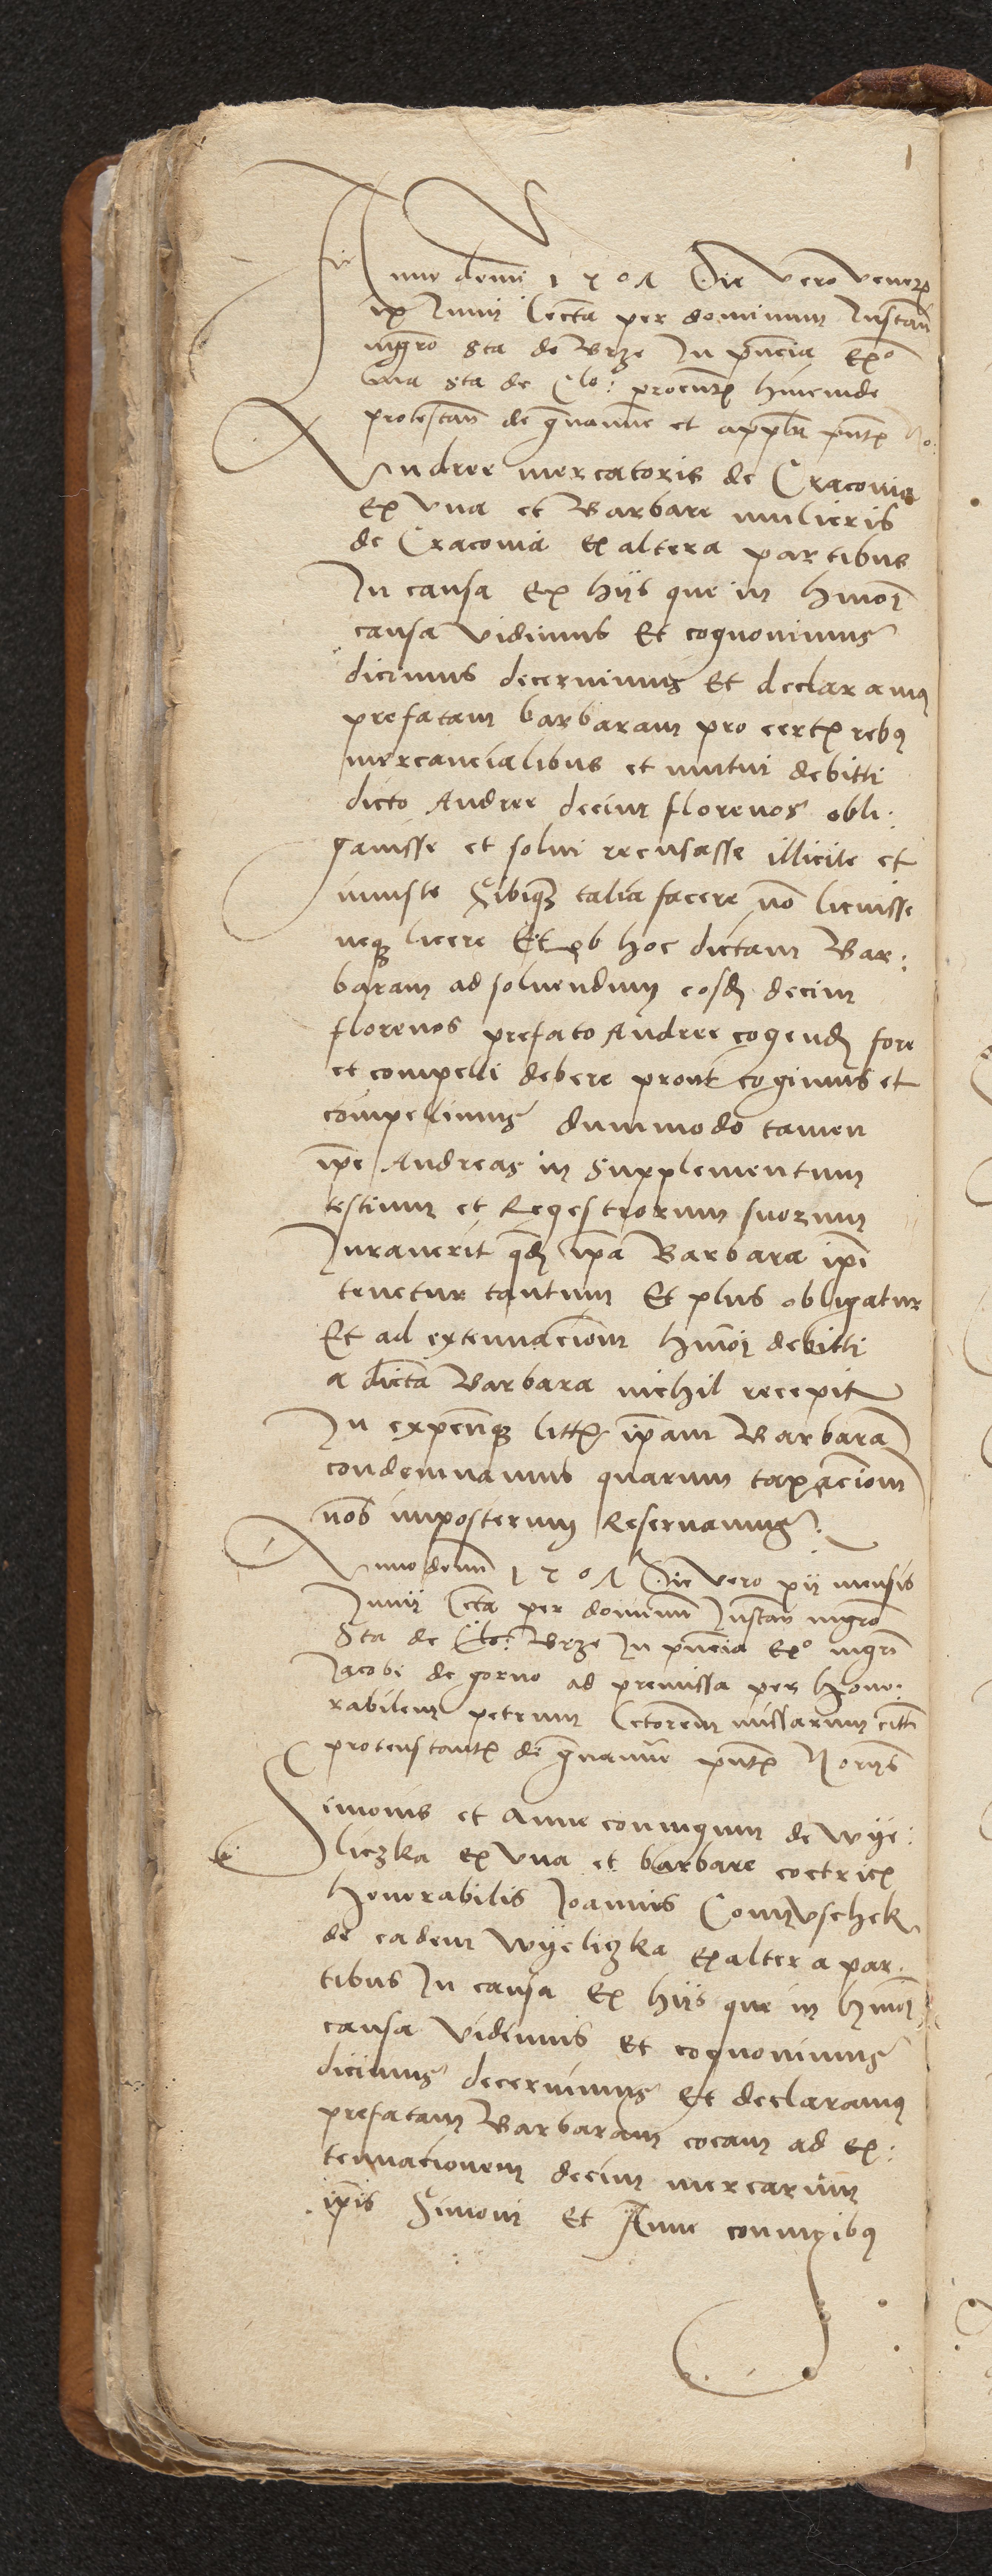 1
Anno domi 1501 Die vero veneris
ix Junii lecta per dominum Instan
mgro Sta de Brze In pncia ex°
Sta de Clo: procurt hincinde
protestan de gnamine et appln pnt
Andree mercatoris de Cracovia
Ex una et Barbare mulieris
de Cracovia Ex altera partibus
In causa Ex hijs que in hmoi
causa vidimus Et cognovimus
dicimus decernimus Et declaramus
prefatam barbaram pro certis rebus
mercancialibus et mutui debitti
dicto Andree decim florenos obli:
gavisse et solvi recusasse illicite et
iniuste Sibique talia facere no licuisse
neque licere Et ob hoc dictam Bar:
baram ad solvendum eosd decim
florenos prefato Andree cogend fore
et compelli debere prout cogimus et
compellimus dummodo tamen
ipe Andreas in Supplementum
testium et Regestrorum suorum
Juraverit qd ipa Barbara ipi
tenetur tantum Et plus obligatur
Et ad extenuacionem hmoi debitti
a dicta Barbara nichil recepit
In expensque litt ipam Barbara
condemnamus quarum taxacionem
nobis imposterum Reservamus
Anno domi 1501 Die vero xij mensis
Junij lecta per dominum Instan mgro
Sta de Clo: Brze In pncia ex° mgri
Jacobi de gorno ad premissa per hono:
rabilem petrum lectorem missarum citt
protenstant de gnamine pnt Noriis
Simonis et Anne coniugum de Wye:
liczka ex una et barbare coctricis
honorabilis Joannis Comuschek
de eadem Wyeliczka Ex altera par:
tibus In causa Ex hijs que in hmoi
causa vidimus Et cognovimus
dicimus decernimus Et declaramus
prefatam Barbaram cocam ad ex:
tenuacionem decim mercarum
ipis Simoni Et Anne coniugibus